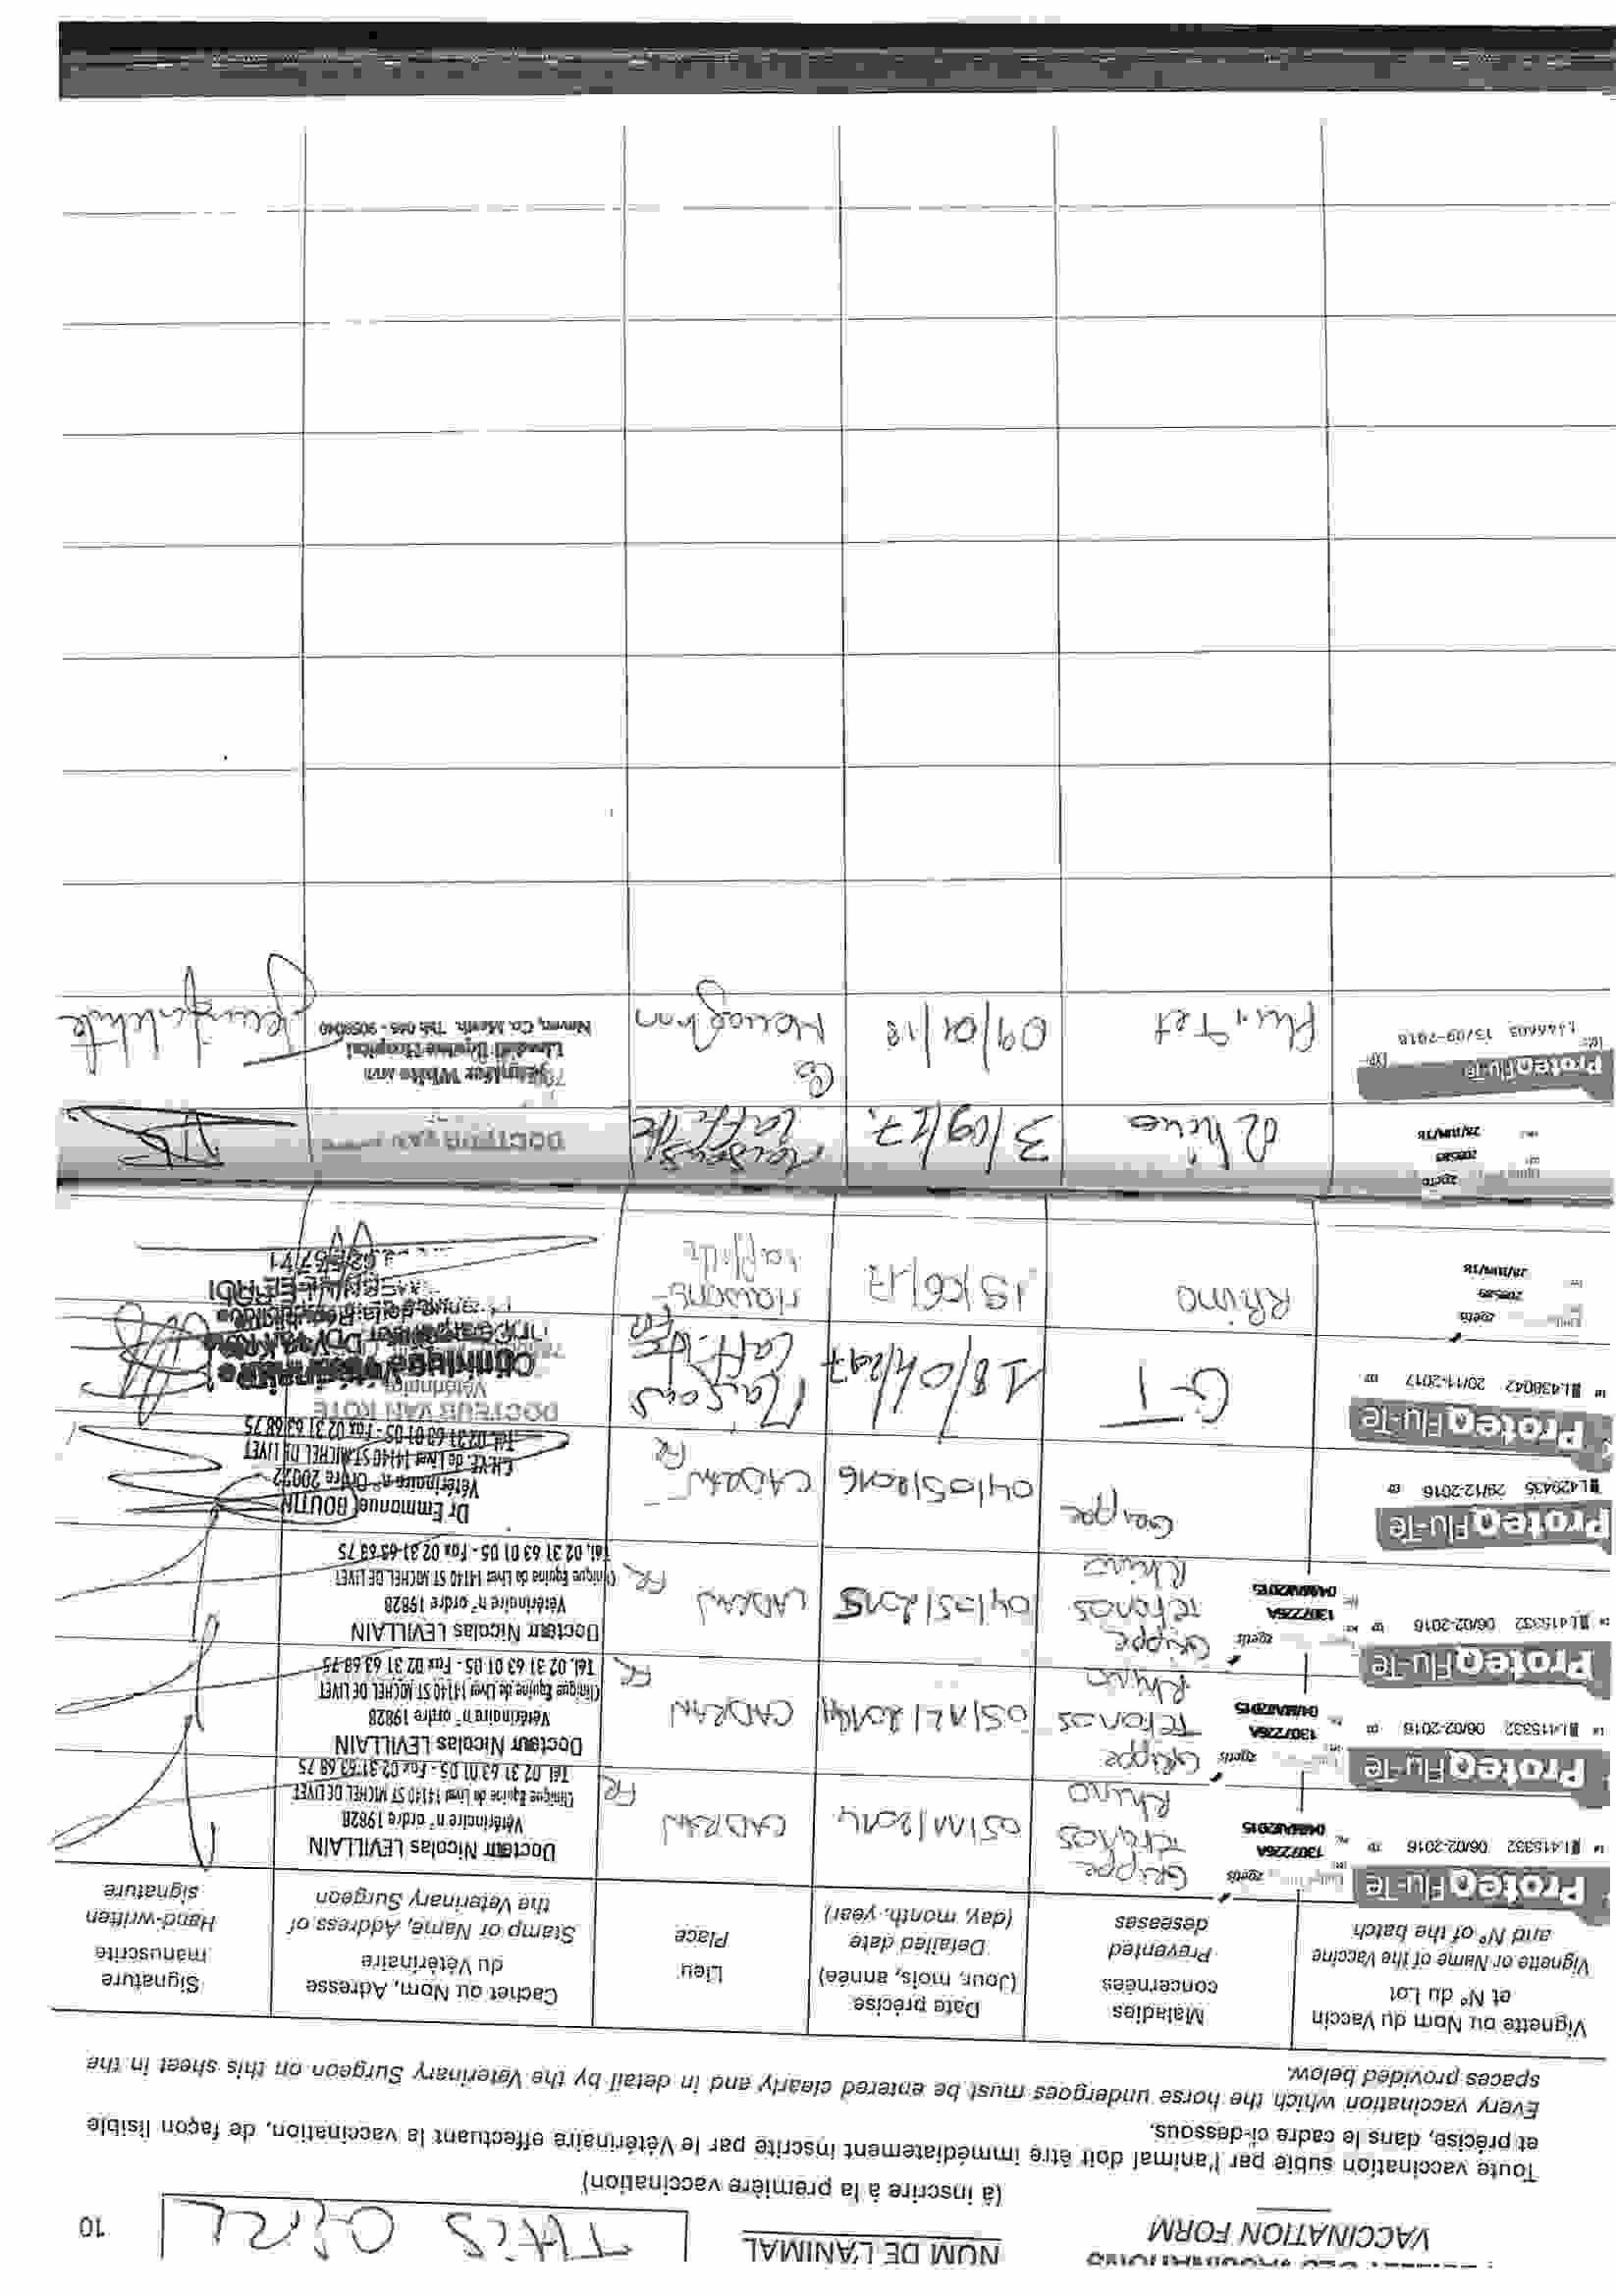 VACCINATION FORM
NOM DE L'ANIMAL
10
(à inscrire à la première vaccination)
Toute vaccination subie par l'animal doit être immédiatement inscrite par le Vétérinaire effectuant la vaccination, de façon lisible
et précise, dans le cadre ci-dessous.
Every vaccination which the horse undergoes must be entered clearly and in detail by the Veterinary Surgeon on this sheet in the
spaces provided below.
Vignette ou Nom du Vaccin
et N° du Lot
Vignette or Name of the Vaccine
and N° of the batch
Maladies
concernées
Prevented
deseases
Date précise
(Jour, mois, année)
Detailed date
(day, month, year)
Lieu
Place
Cachet ou Nom, Adresse
du Vétérinaire
Stamp or Name, Address of
the Veterinary Surgeon
Signature
manuscrite
Hand-written
signature
ProteqFlu-Te
L415332 06/02-2016
zoetis
1307226A
Grippe
Tetanos
Rhino
05/11/2014
CADRAN
FR
Docteur Nicolas LEVILLAIN
Vétérinaire n° ordre 19828
Clinique Equine de Livet 14140 ST MICHEL DE LIVET
Tél. 02 31 63 01 05 - Fax 02 31 63 68 75
ProteqFlu-Te
L415332 06/02-2016
zoetis
1307226A
Grippe
Tetanos
Rhino
05/12/2014
CADRAN
FR
Docteur Nicolas LEVILLAIN
Vétérinaire n° ordre 19828
Clinique Equine de Livet 14140 ST MICHEL DE LIVET
Tél. 02 31 63 01 05 - Fax 02 31 63 68 75
ProteqFlu-Te
L415332 06/02-2016
zoetis
1307226A
Grippe
Tetanos
Rhino
04/05/2015
CADRAN
FR
Docteur Nicolas LEVILLAIN
Vétérinaire n° ordre 19828
Clinique Equine de Livet 14140 ST MICHEL DE LIVET
Tél. 02 31 63 01 05 - Fax 02 31 63 68 75
ProteqFlu-Te
L429435 29/12-2016
Grippe
04/05/2016
CADRAN
FR
Dr Emmanuel BOUTIN
Vétérinaire n° Ordre 20022
C.H.V.E. de Livet 14140 ST MICHEL DE LIVET
Tél. 02 31 63 01 05 - Fax 02 31 63 68 75
ProteqFlu-Te
L438042 20/11-2017
G-T
18/04/2017
Maisons
Laffitte
DOCTEUR VAN KOTE
Clinique Vétérinaire
zoetis
208585
28/JUN/18
Rhino
15/06/17
Maisons
Laffitte
zoetis
208585
28/JUN/18
Rhino
3/09/17
Maisons
Laffitte
DOCTEUR VAN
ProteqFlu-Te
15/09-2018
Flu, Tet
09/01/18
Co
Monaghan
Jennifer White
Equine Hospital
Navan, Co. Meath. Tel: